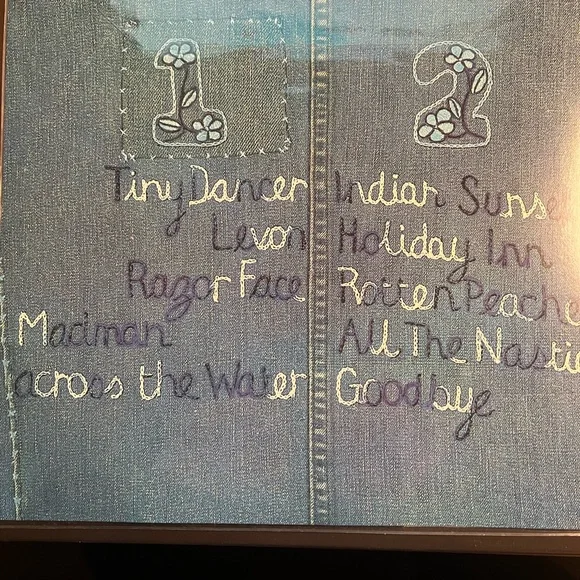 1
Tiny Dancer
Levon
Razor Face
Madman
across the Water
2
Indian Sunse
Holiday Inn
Rotten Peache
All The Nastie
Goodbye